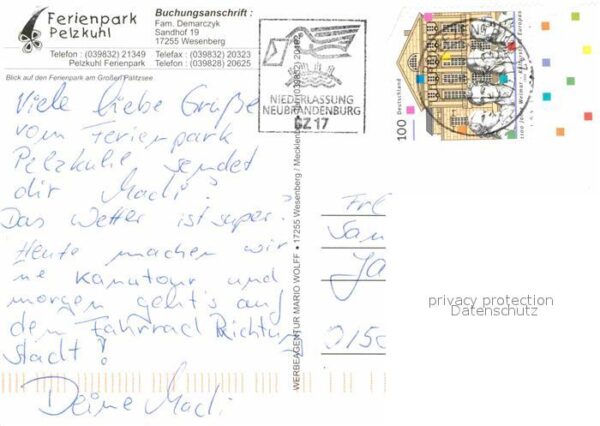 Ferienpark
Pelzkuhl
Telefon : (039832) 21349
Pelzkuhl Ferienpark
Buchungsanschrift :
Fam. Demarczyk
Sandhof 19
17255 Wesenberg
Telefon : (039832) 20323
Telefon : (039828) 20625
Blick auf den Ferienpark am Großen Pälitzsee
NIEDERLASSUNG
NEUBRANDENBURG
BZ 17
Deutschland
100
Viele liebe Grüße
vom Ferienpark
Pelzkuhle sendet
dir Madi!
Das Wetter ist super!
Heute machen wir
ne Kanutour und
morgen geht's auf
dem Fahrrad Richtung
Stadt!
Deine Madi
WERBEAGENTUR MARIO WOLFF • 17255 Wesenberg / Mecklenburg
Frl
San
Ja
0150
privacy protection
Datenschutz